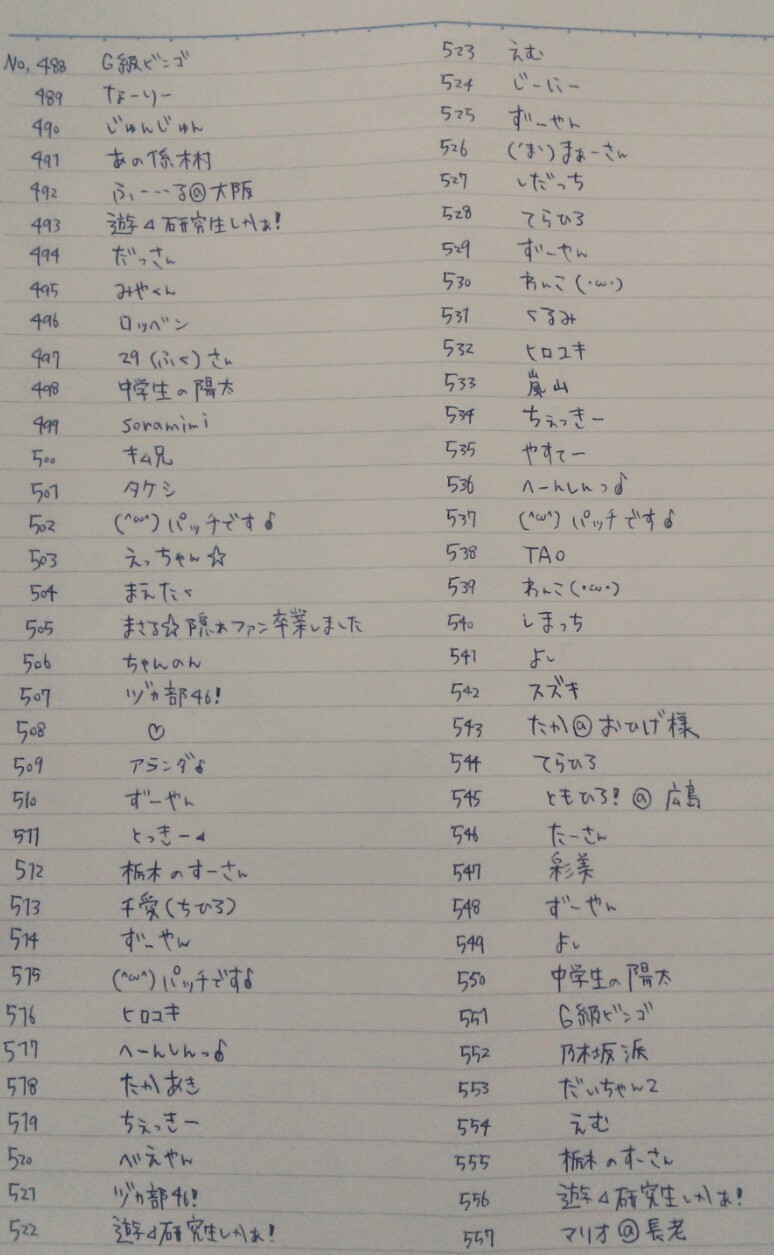 No. 488 G級ビンゴ
489 なーりー
490 じゅんじゅん
491 あの係木村
492 ふーーーる@大阪
493 遊⊿研究生しかぁ!
494 だっさん
495 みやくん
496 ロッベン
497 29(ふく)さん
498 中学生の陽太
499 soramimi
500 キム兄
501 タケシ
502 (^ω^)パッチです♪
503 えっちゃん☆
504 まえたく
505 まさる☆隠れファン卒業しました
506 ちゃんのん
507 ヅカ部46!
508 ♡
509 アランダ♪
510 ずーやん
511 とっきー⊿
512 栃木のすーさん
513 千愛(ちひろ)
514 ずーやん
515 (^ω^)パッチです♪
516 ヒロユキ
517 へーんしんっ♪
518 たかあき
519 ちぇっきー
520 べえやん
521 ヅカ部46!
522 遊⊿研究生しかぁ!
523 えむ
524 じーにー
525 ずーやん
526 (´ま`)まぁーさん
527 しだっち
528 てらひろ
529 ずーやん
530 わんこ(・ω・)
531 くるみ
532 ヒロユキ
533 嵐山
534 ちぇっきー
535 やすてー
536 へーんしんっ♪
537 (^ω^)パッチです♪
538 TAO
539 わんこ(・ω・)
540 しまっち
541 よし
542 スズキ
543 たか@おひげ様
544 てらひろ
545 ともひろ!@広島
546 たーさん
547 彩美
548 ずーやん
549 よし
550 中学生の陽太
551 G級ビンゴ
552 乃木坂派
553 だいちゃん2
554 えむ
555 栃木のすーさん
556 遊⊿研究生しかぁ!
557 マリオ@長老